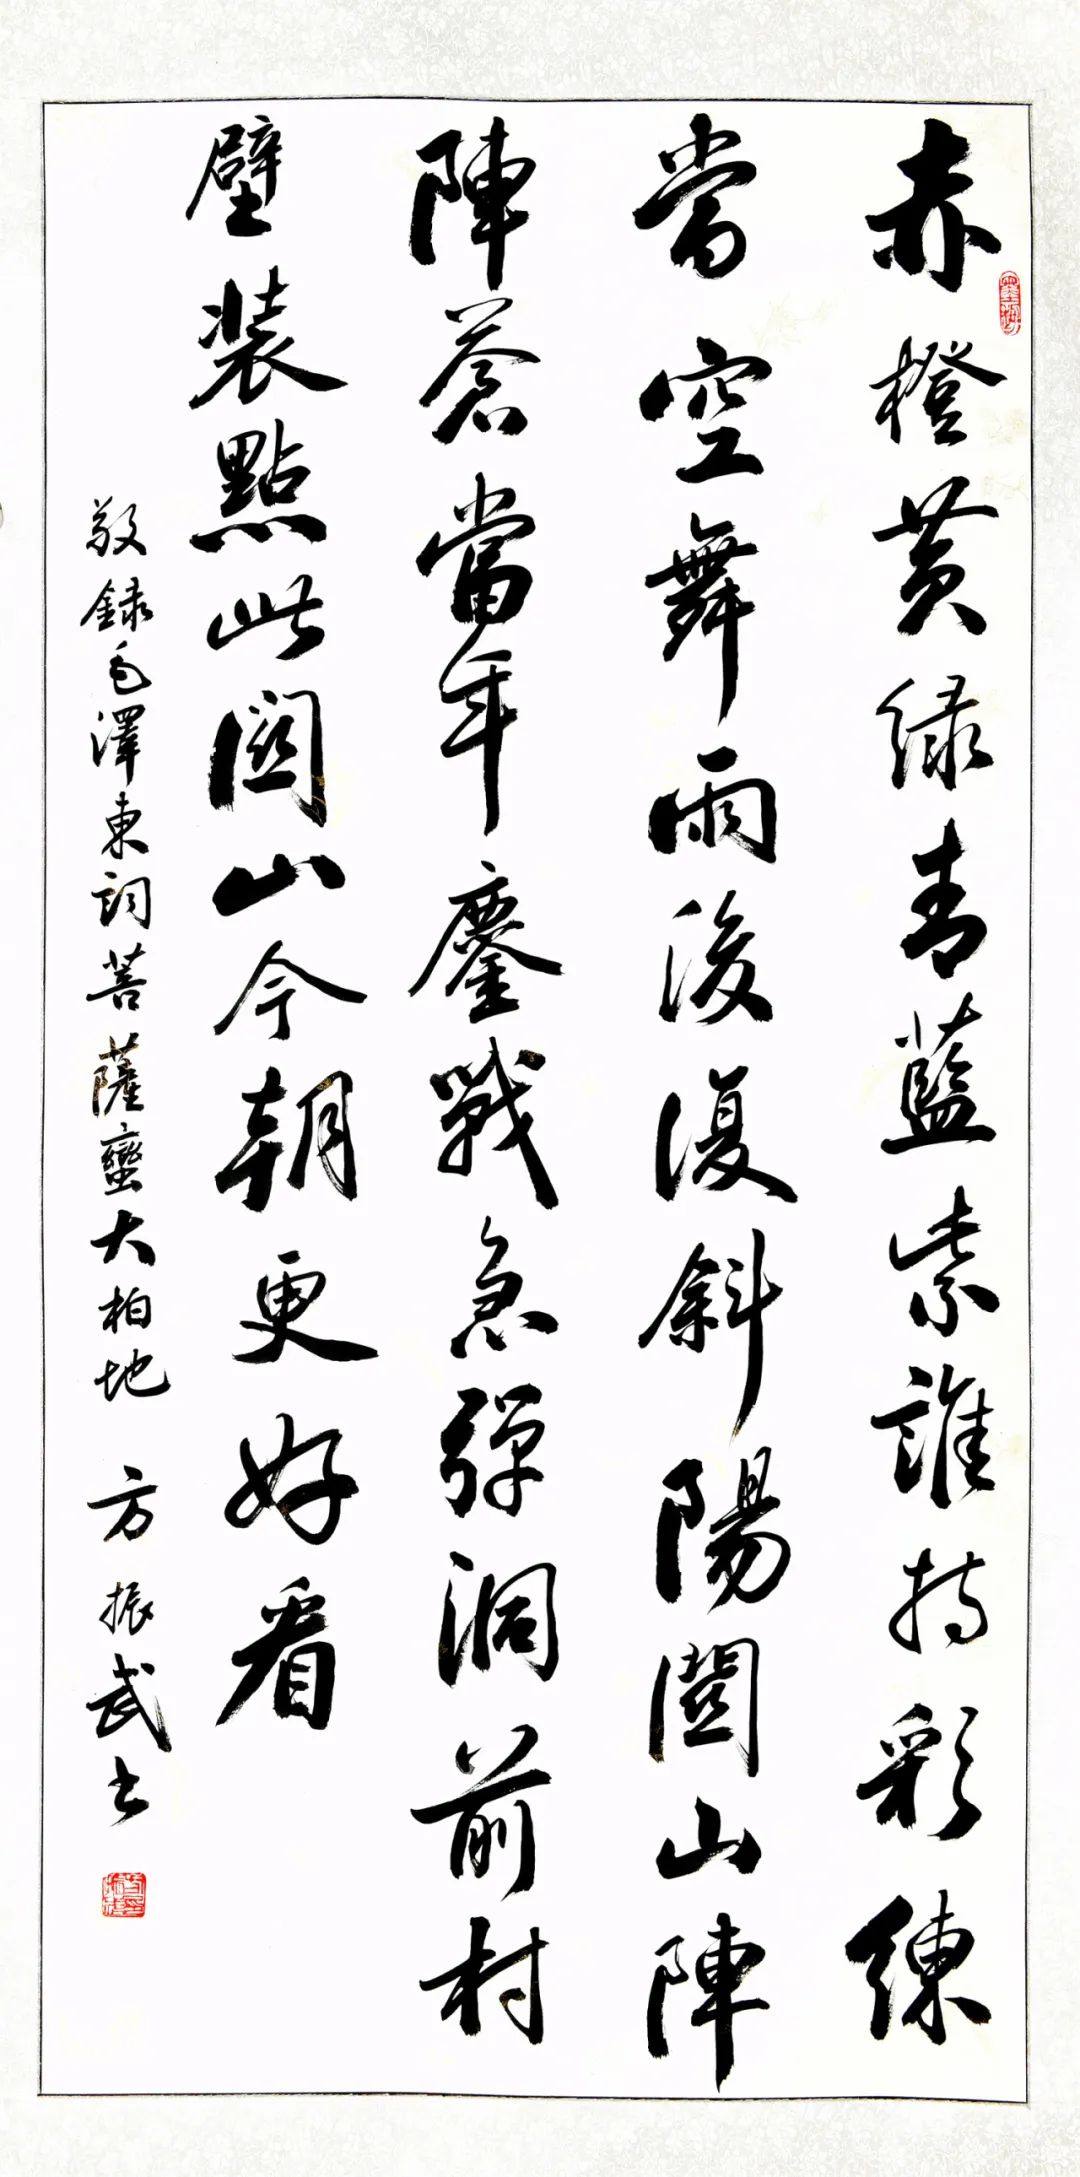 赤橙黄绿青藍紫誰持彩練
當空舞雨後復斜陽關山陣
陣蒼當年鏖戰急彈洞前村
壁裝點此關山今朝更好看
敬録毛澤東詞菩薩蠻大柏地 方振武书